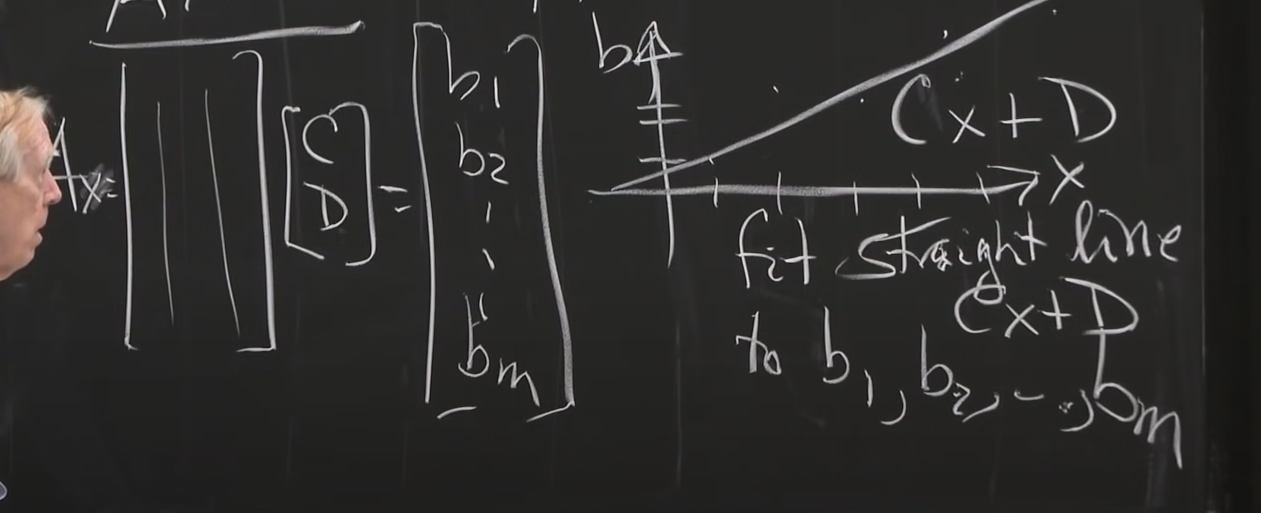 Ax=
[ C
D ] =
[ b1
b2
bm ]
b
Cx+D
x
fit straight line
Cx+D
to b1, b2, -.., bm